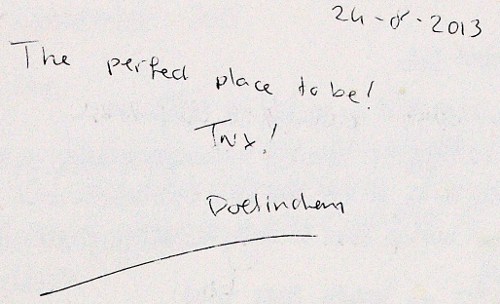 24-8-2013
The perfect place to be!
Tnx!
Doetinchem